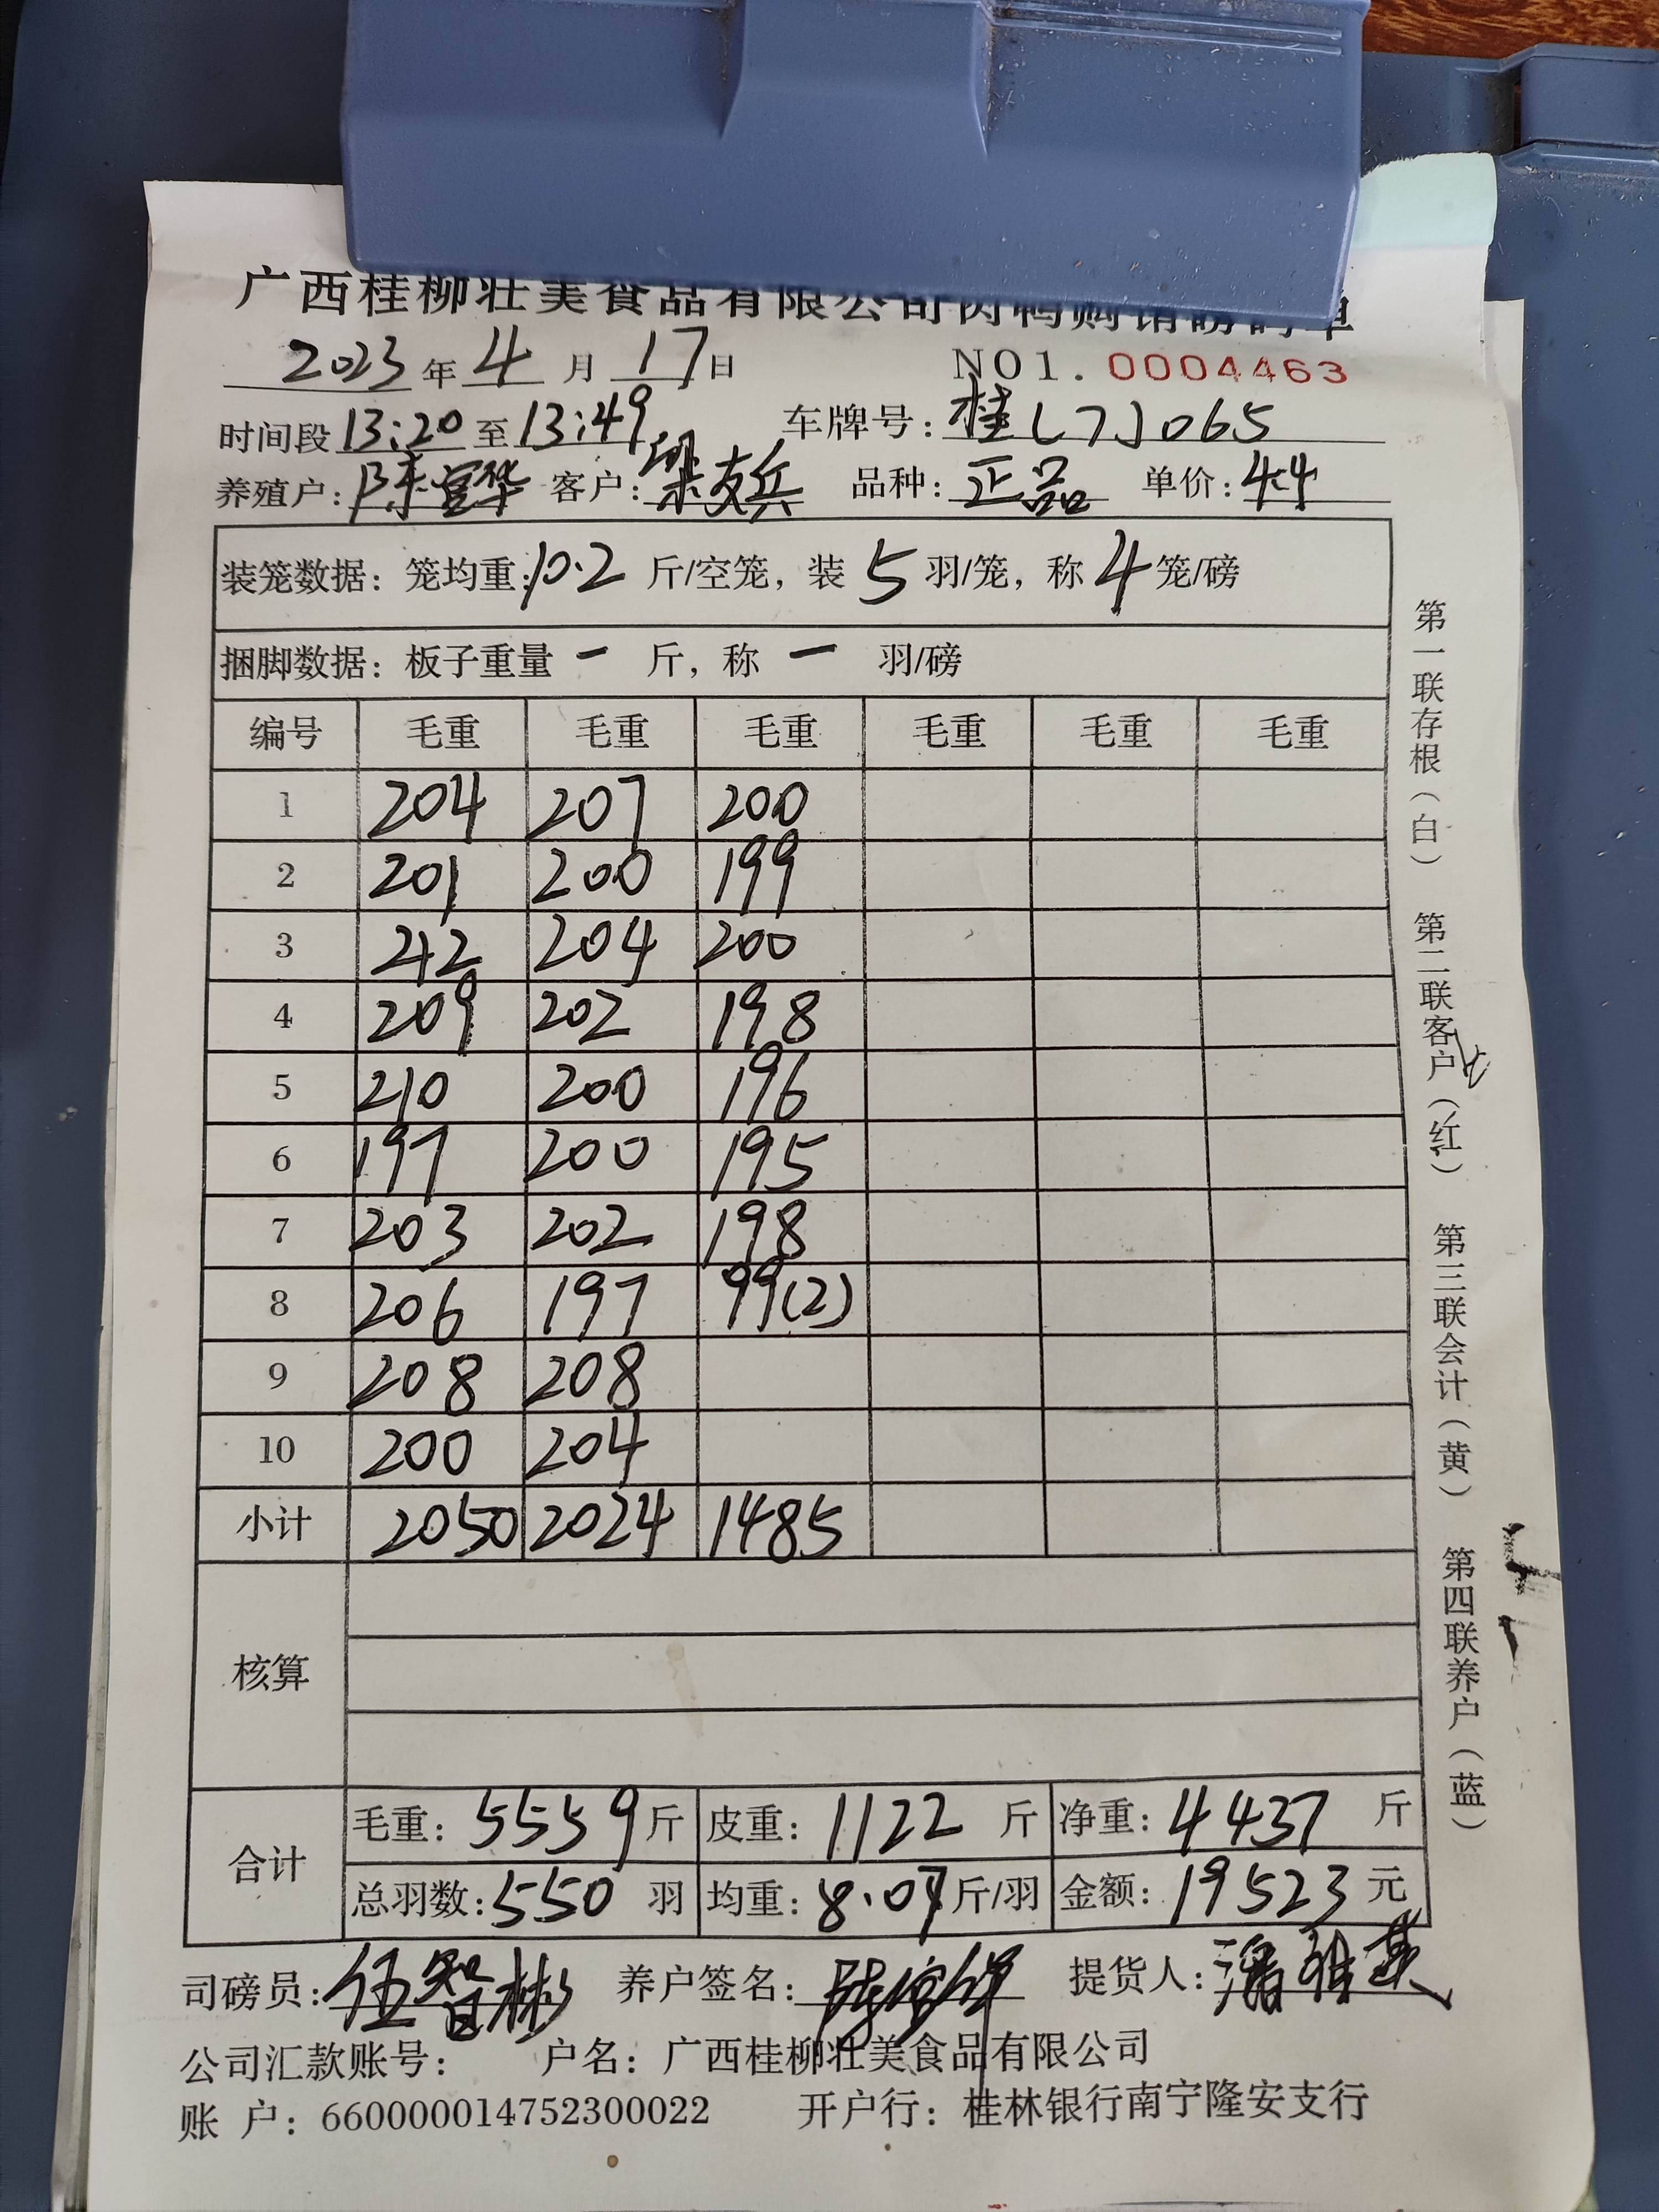 广西桂柳壮美食品有限公司肉鸭购销磅码单
2023年4月17日 NO1.0004463
时间段13:20至13:49 车牌号:桂L7J065
养殖户:陈宜华 客户:梁支兵 品种:正品 单价:4.4
装笼数据:笼均重:10.2斤/空笼,装5羽/笼,称4笼/磅
捆脚数据:板子重量一斤,称一羽/磅
编号 毛重 毛重 毛重 毛重 毛重 毛重
1 204 207 200
2 201 200 199
3 212 204 200
4 209 202 198
5 210 200 196
6 197 200 195
7 203 202 198
8 206 197 99(2)
9 208 208
10 200 204
小计 2050 2024 1485
核算
合计 毛重:5559斤 皮重:1122斤 净重:4437斤
总羽数:550羽 均重:8.07斤/羽 金额:19523元
司磅员:伍智彬 养户签名: 提货人:
公司汇款账号: 户名:广西桂柳壮美食品有限公司
账户:660000014752300022 开户行:桂林银行南宁隆安支行
第一联存根(白) 第二联客户(红) 第三联会计(黄) 第四联养户(蓝)